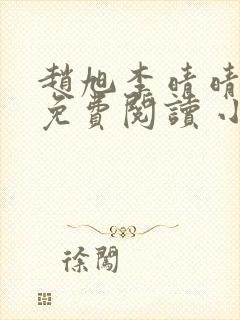 趙旭李晴晴
免費閱讀小
徐闖